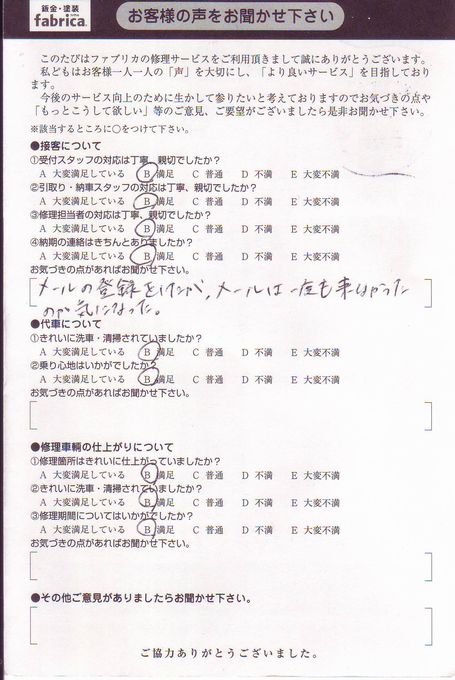 鈑金・塗装
fabrica.
お客様の声をお聞かせ下さい
このたびはファブリカの修理サービスをご利用頂きまして誠にありがとうございます。
私どもはお客様一人一人の「声」を大切にし、「より良いサービス」を目指しており
ます。
今後のサービス向上のために生かして参りたいと考えておりますのでお気づきの点や
「もっとこうして欲しい」等のご意見、ご要望がございましたら是非お聞かせ下さい。
※該当するところに○をつけて下さい。
●接客について
①受付スタッフの対応は丁寧、親切でしたか？
A 大変満足している B 満足 C 普通 D 不満 E 大変不満
②引取り・納車スタッフの対応は丁寧、親切でしたか？
A 大変満足している B 満足 C 普通 D 不満 E 大変不満
③修理担当者の対応は丁寧、親切でしたか？
A 大変満足している B 満足 C 普通 D 不満 E 大変不満
④納期の連絡はきちんとありましたか？
A 大変満足している B 満足 C 普通 D 不満 E 大変不満
お気づきの点があればお聞かせ下さい。
メールの登録をしたが、メールは一度も来なかった
のが気になった。
●代車について
①きれいに洗車・清掃されていましたか？
A 大変満足している B 満足 C 普通 D 不満 E 大変不満
②乗り心地はいかがでしたか？
A 大変満足している B 満足 C 普通 D 不満 E 大変不満
お気づきの点があればお聞かせ下さい。
●修理車輌の仕上がりについて
①修理箇所はきれいに仕上がっていましたか？
A 大変満足している B 満足 C 普通 D 不満 E 大変不満
②きれいに洗車・清掃されていましたか？
A 大変満足している B 満足 C 普通 D 不満 E 大変不満
③修理期間についてはいかがでしたか？
A 大変満足している B 満足 C 普通 D 不満 E 大変不満
お気づきの点があればお聞かせ下さい。
●その他ご意見がありましたらお聞かせ下さい。
ご協力ありがとうございました。